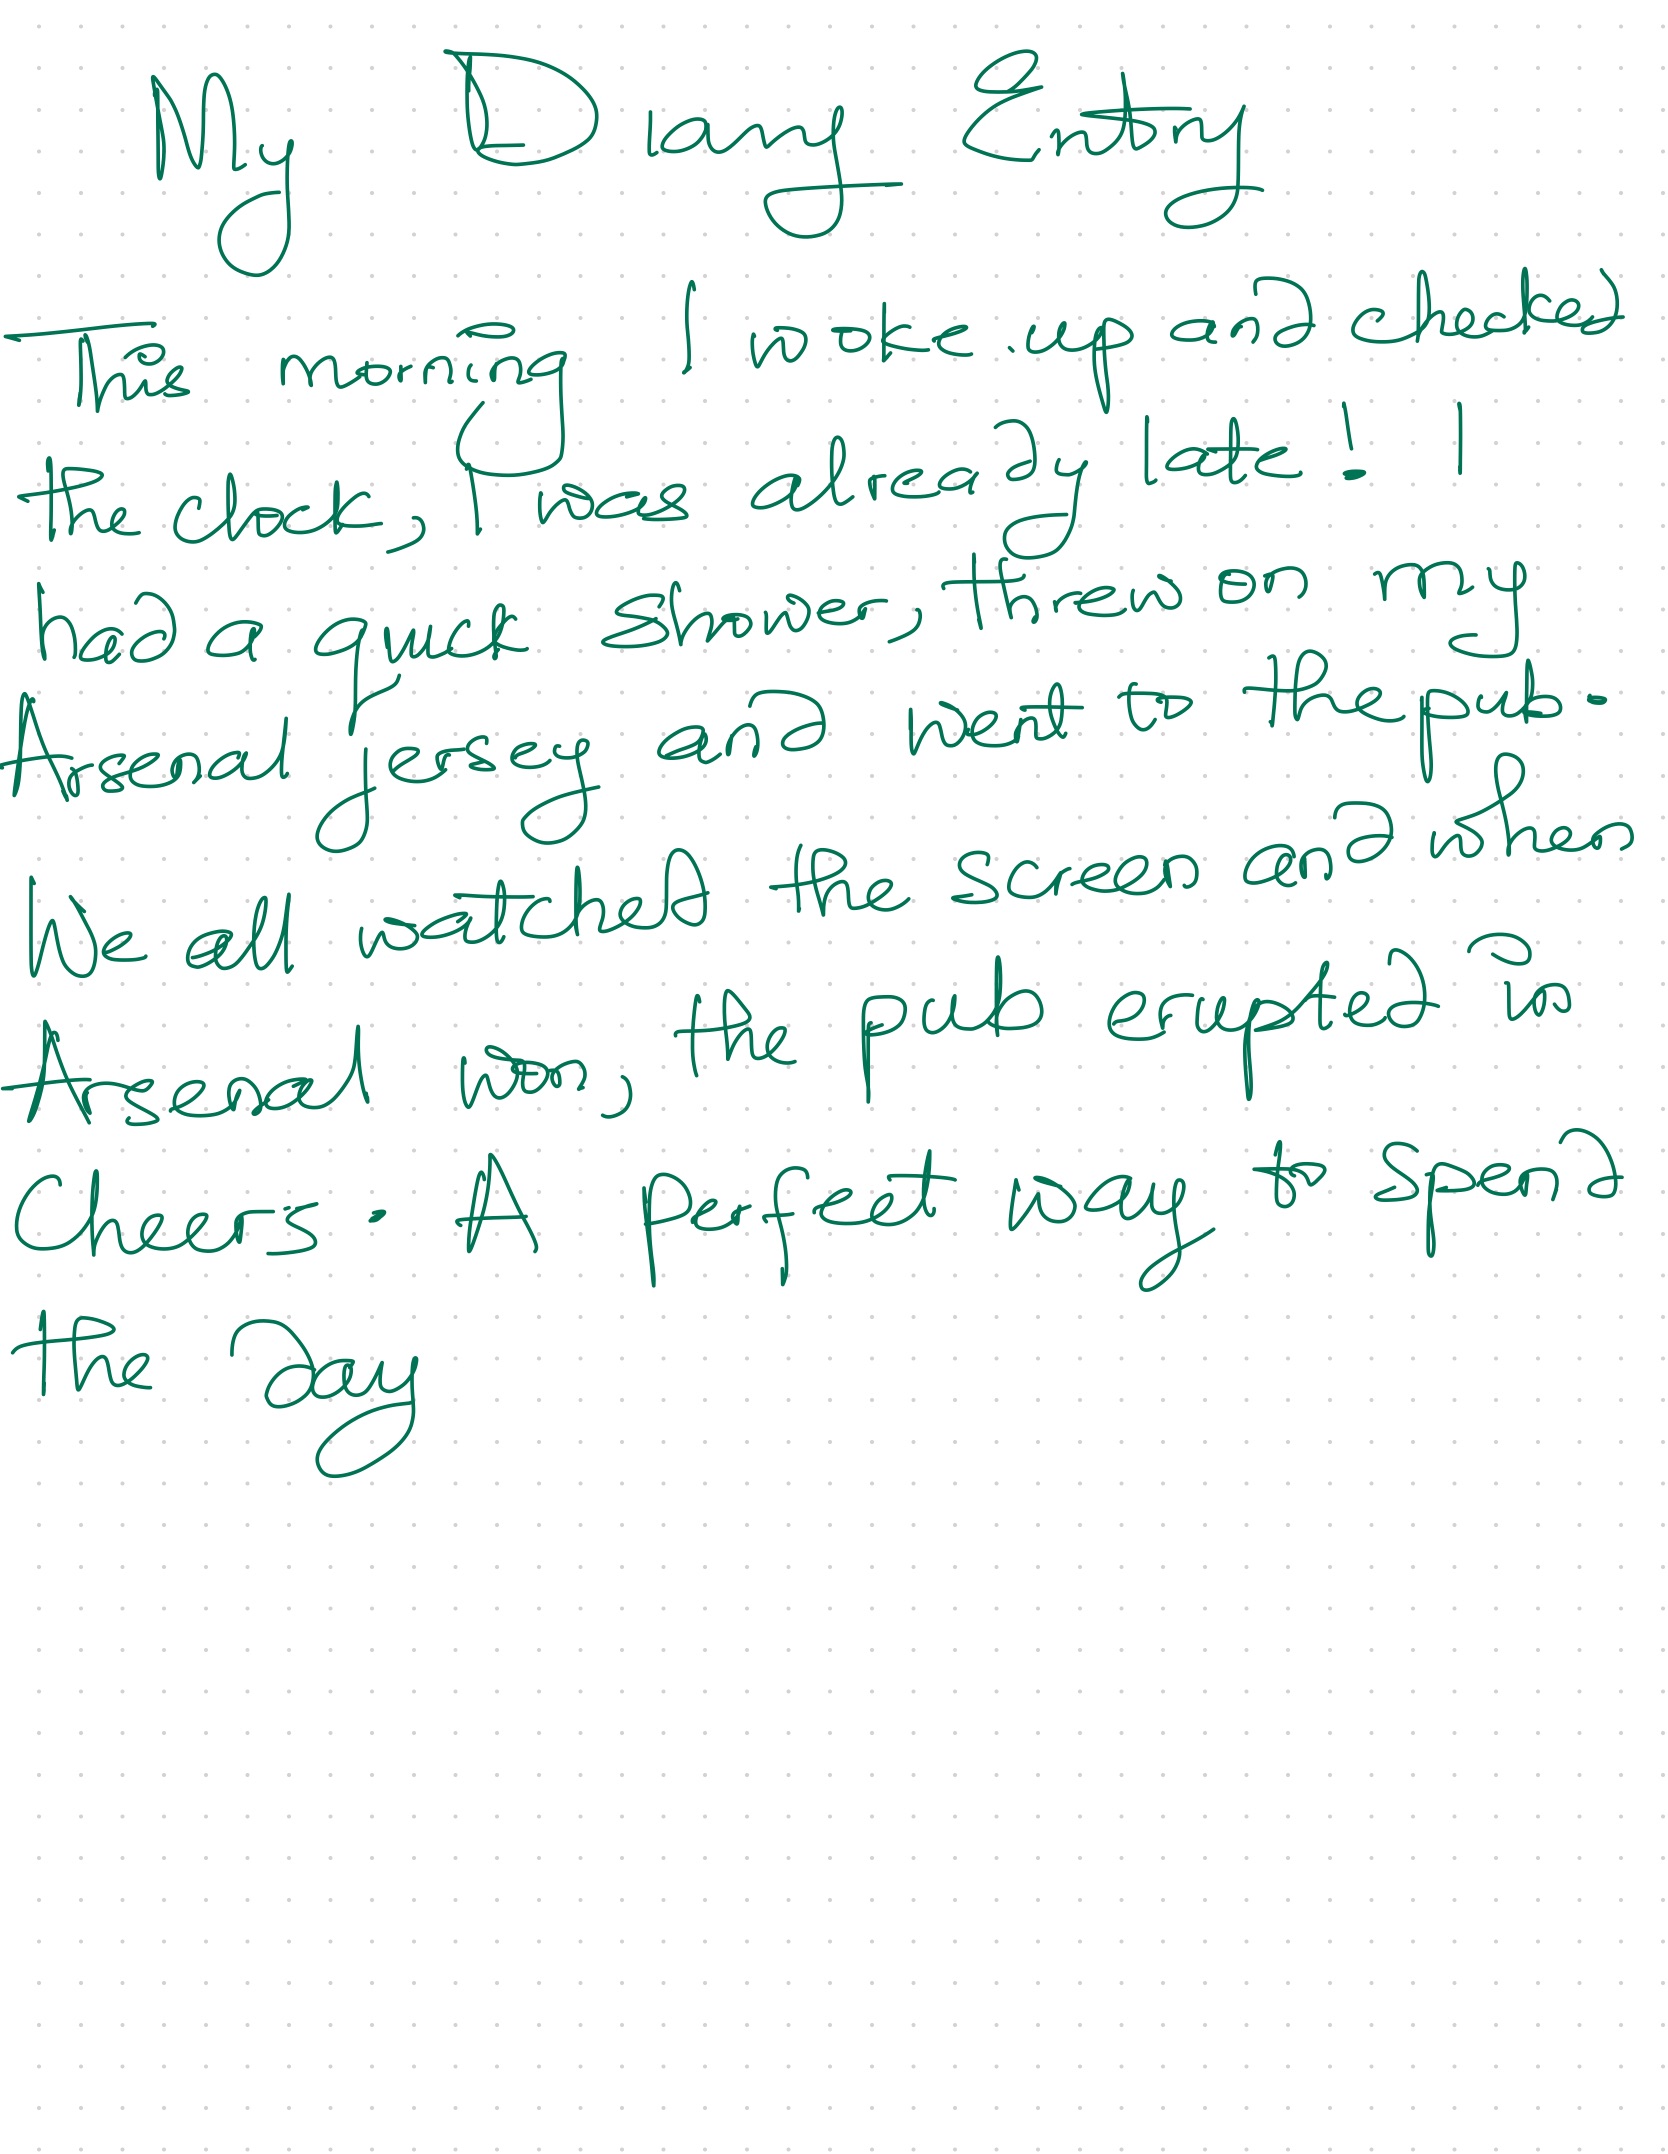 My Diary Entry
This morning I woke up and checked
the clock, I was already late! I
had a quick shower, threw on my
Arsenal jersey and went to the pub.
We all watched the screen and when
Arsenal won, the pub erupted in
Cheers. A perfect way to spend
the day